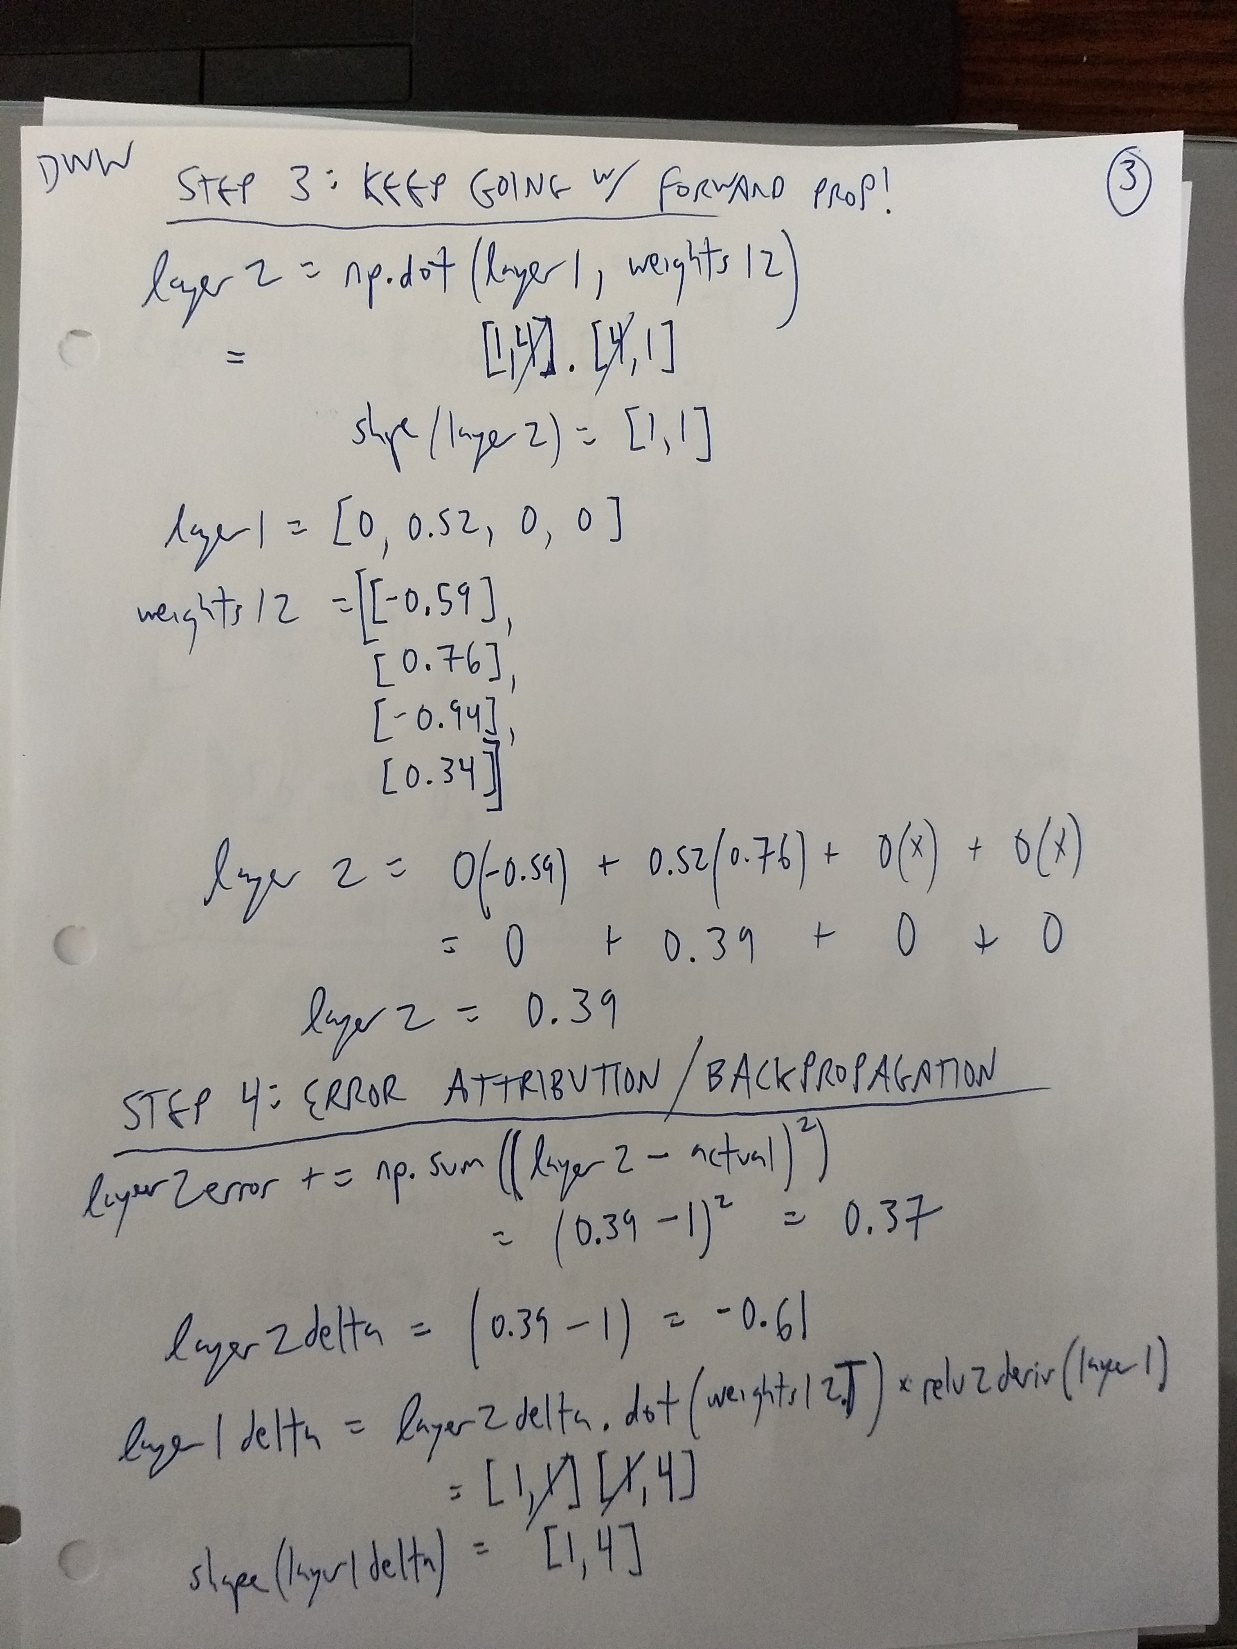 DWW
STEP 3: KEEP GOING W/ FORWARD PROP!
3
layer 2 = np.dot(layer 1, weights 12)
= [1,4] . [4,1]
shpe(layer 2) = [1,1]
layer 1 = [0, 0.52, 0, 0]
weights 12 = [[-0.59],
[0.76],
[-0.94],
[0.34]]
layer 2 = 0(-0.59) + 0.52(0.76) + 0(x) + 0(x)
= 0 + 0.39 + 0 + 0
layer 2 = 0.39
STEP 4: ERROR ATTRIBUTION/BACKPROPAGATION
layer 2 error += np.sum((layer 2 - actual)²)
= (0.39 - 1)² = 0.37
layer 2 delta = (0.39 - 1) = -0.61
layer 1 delta = layer 2 delta.dot(weights 12.T) * relu2deriv(layer 1)
= [1,1] [1,4]
shape(layer 1 delta) = [1,4]